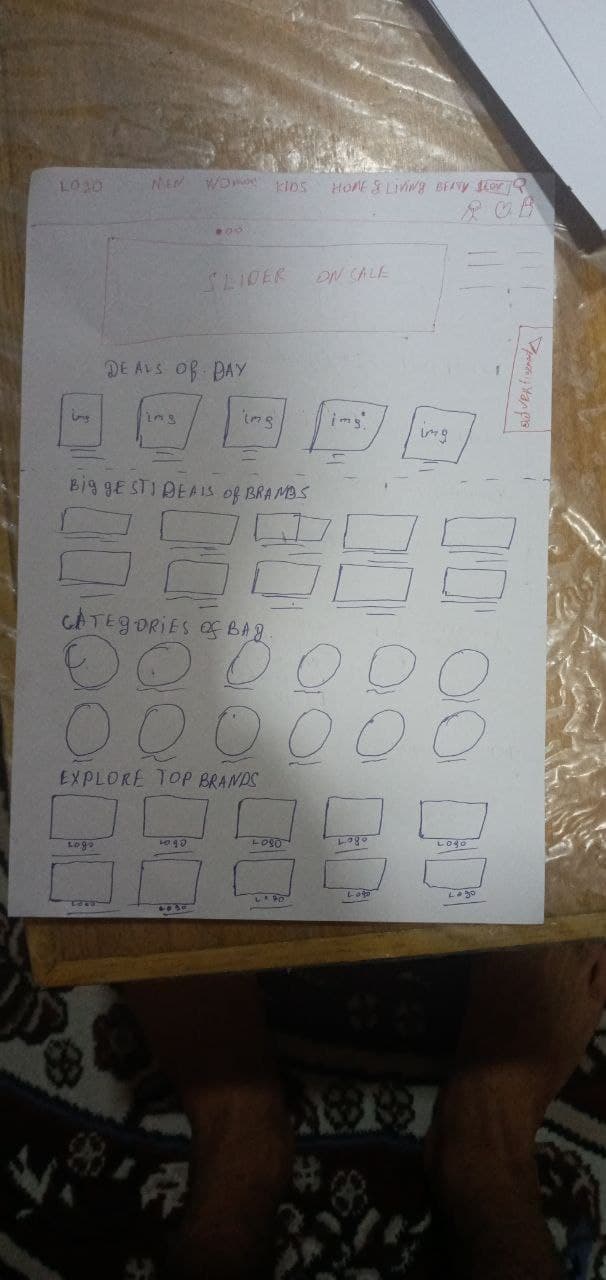 LOGO MEN WOMEN KIDS HOME & LIVING BEATY
SLIDER ON SALE
DEALS OF DAY
img img img img img
BIGGEST DEALS of BRANDS
CATEGORIES of BAG
EXPLORE TOP BRANDS
LOGO LOGO LOGO LOGO LOGO
LOGO LOGO LOGO LOGO LOGO